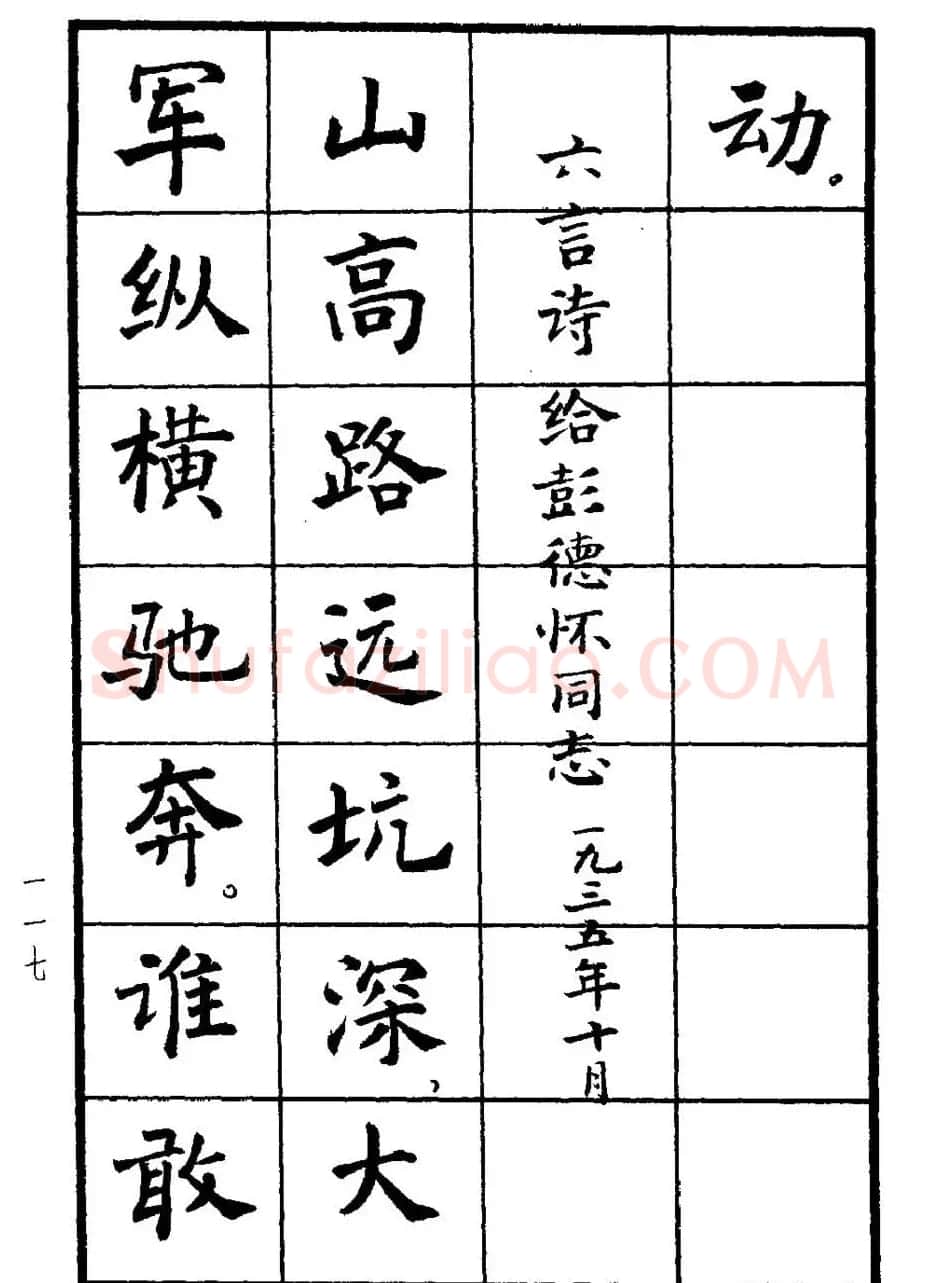 动。
六言诗 给彭德怀同志 一九三五年十月
山高路远坑深，大
军纵横驰奔。谁敢
一一七
Shufaziliao.COM